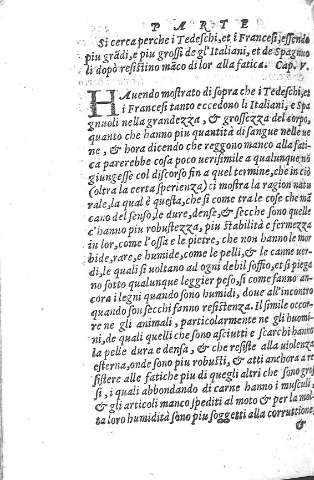 PARTE
Si cerca perche i Tedeschi, et i Francesi, essendo
piu grãdi, e piu grossi de gl'Italiani, et de Spagnuo
li dopò resistino mãco di lor alla fatica. Cap. V.
HAuendo mostrato di sopra che i Tedeschi, et
i Francesi tanto eccedono li Italiani, e Spa
gnuoli nella grandezza, & grossezza del corpo,
quanto che hanno piu quantità di sangue nelle ue
ne, & hora dicendo che reggono manco alla fati-
ca parerebbe cosa poco uerisimile a qualunque nõ
giungesse col discorso fin a quel termine, che in ciò
(oltra la certa sperienza) ci mostra la ragion natu
rale, la qual è questa, che sì come tra le cose che mã
cano del senso, le dure, dense, & secche sono quelle
c'hanno piu robustezza, piu stabilità e fermezza
in lor, come l'ossa e le pietre, che non hanno le mor
bide, rare, e humide, come le pelli, & le canne uer-
di, le quali si uoltano ad ogni debil soffio, et si piega
no sotto qualunque leggier peso, sì come fanno an-
cora i legni quando sono humidi, doue all'incontro
quando son secchi fanno resistenza. Il simile occor-
re ne gli animali, particolarmente ne gli huomi-
ni, de quali quelli che sono asciutti e scarchi hanno
la pelle dura e densa, & che resiste alla uiolenza
esterna, onde sono piu robusti, & atti anchora a re
sistere alle fatiche piu di quegli altri che sono gros
si, i quali abbondando di carne hanno i musculi,
& gli articoli manco spediti al moto & per la mol-
ta loro humidità sono piu soggetti alla corruttione,
&